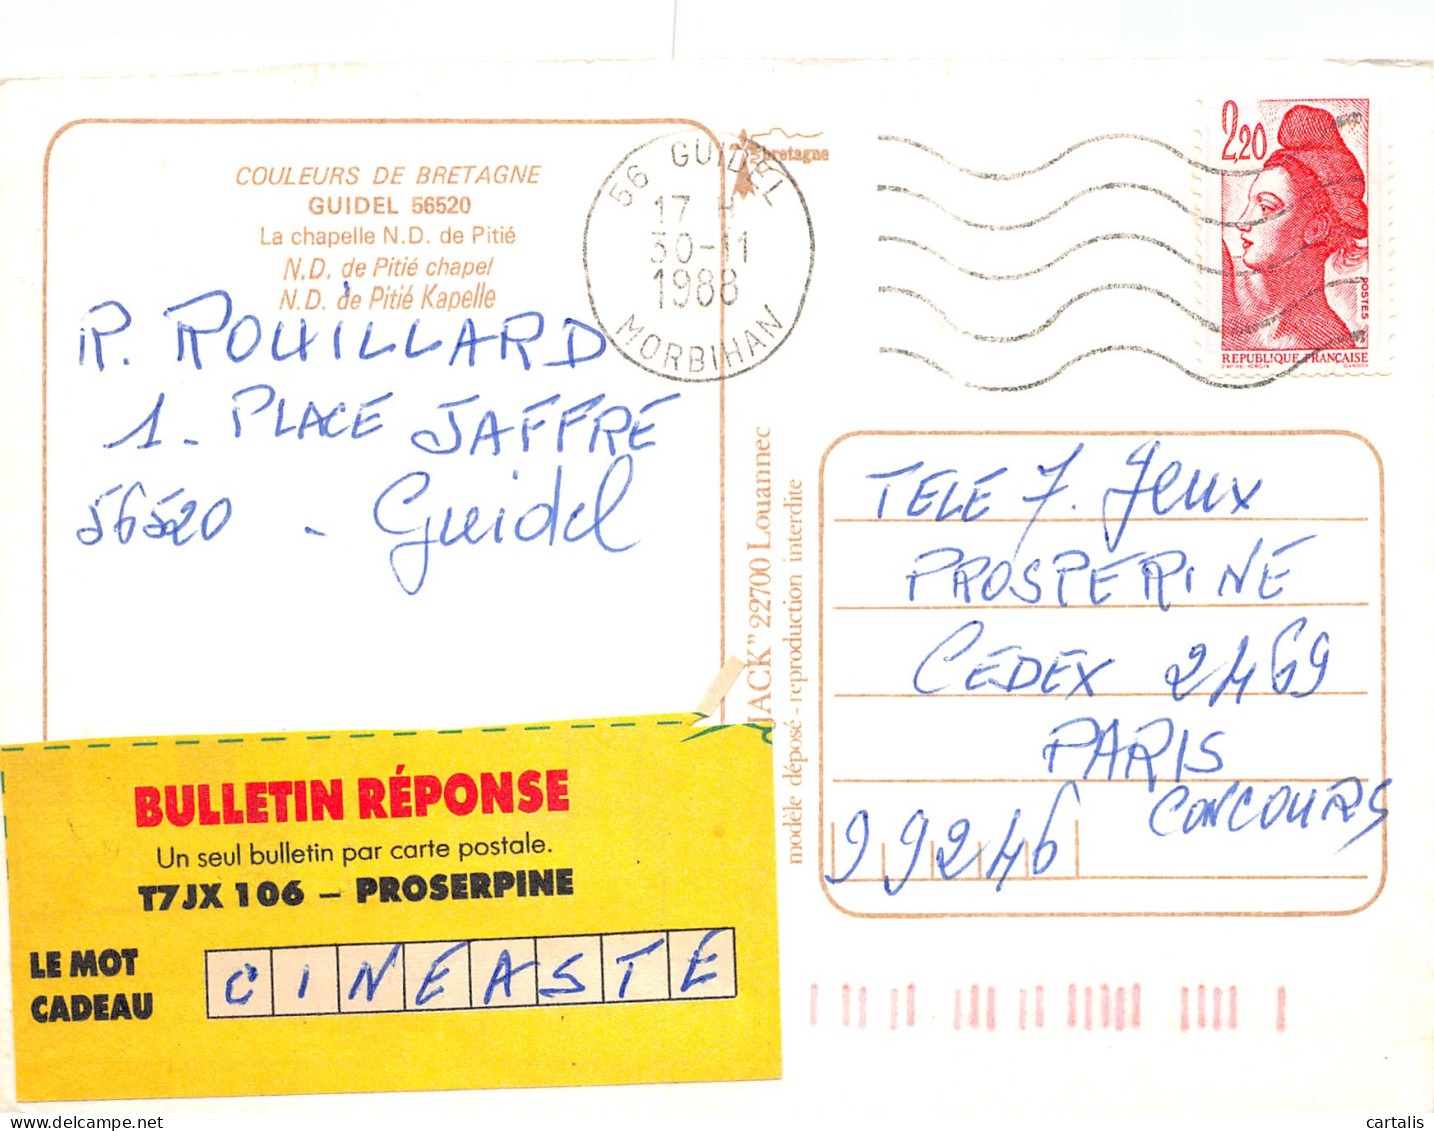 COULEURS DE BRETAGNE
GUIDEL 56520
La chapelle N.D. de Pitié
N.D. de Pitié chapel
N.D. de Pitié Kapelle
R. ROUILLARD
1. PLACE JAFFRÉ
56520 - Guidel
56 GUIDEL
17 H
30-11
1988
MORBIHAN
bretagne
2,20
POSTES
RÉPUBLIQUE FRANÇAISE
GANDON
JACK" 22700 Louannec
modèle déposé - reproduction interdite
TELE 7. Jeux
PROSPERINE
CEDEX 2469
PARIS
CONCOURS
99246
BULLETIN RÉPONSE
Un seul bulletin par carte postale.
T7JX 106 – PROSERPINE
LE MOT
CADEAU
CINEASTE
cartalis